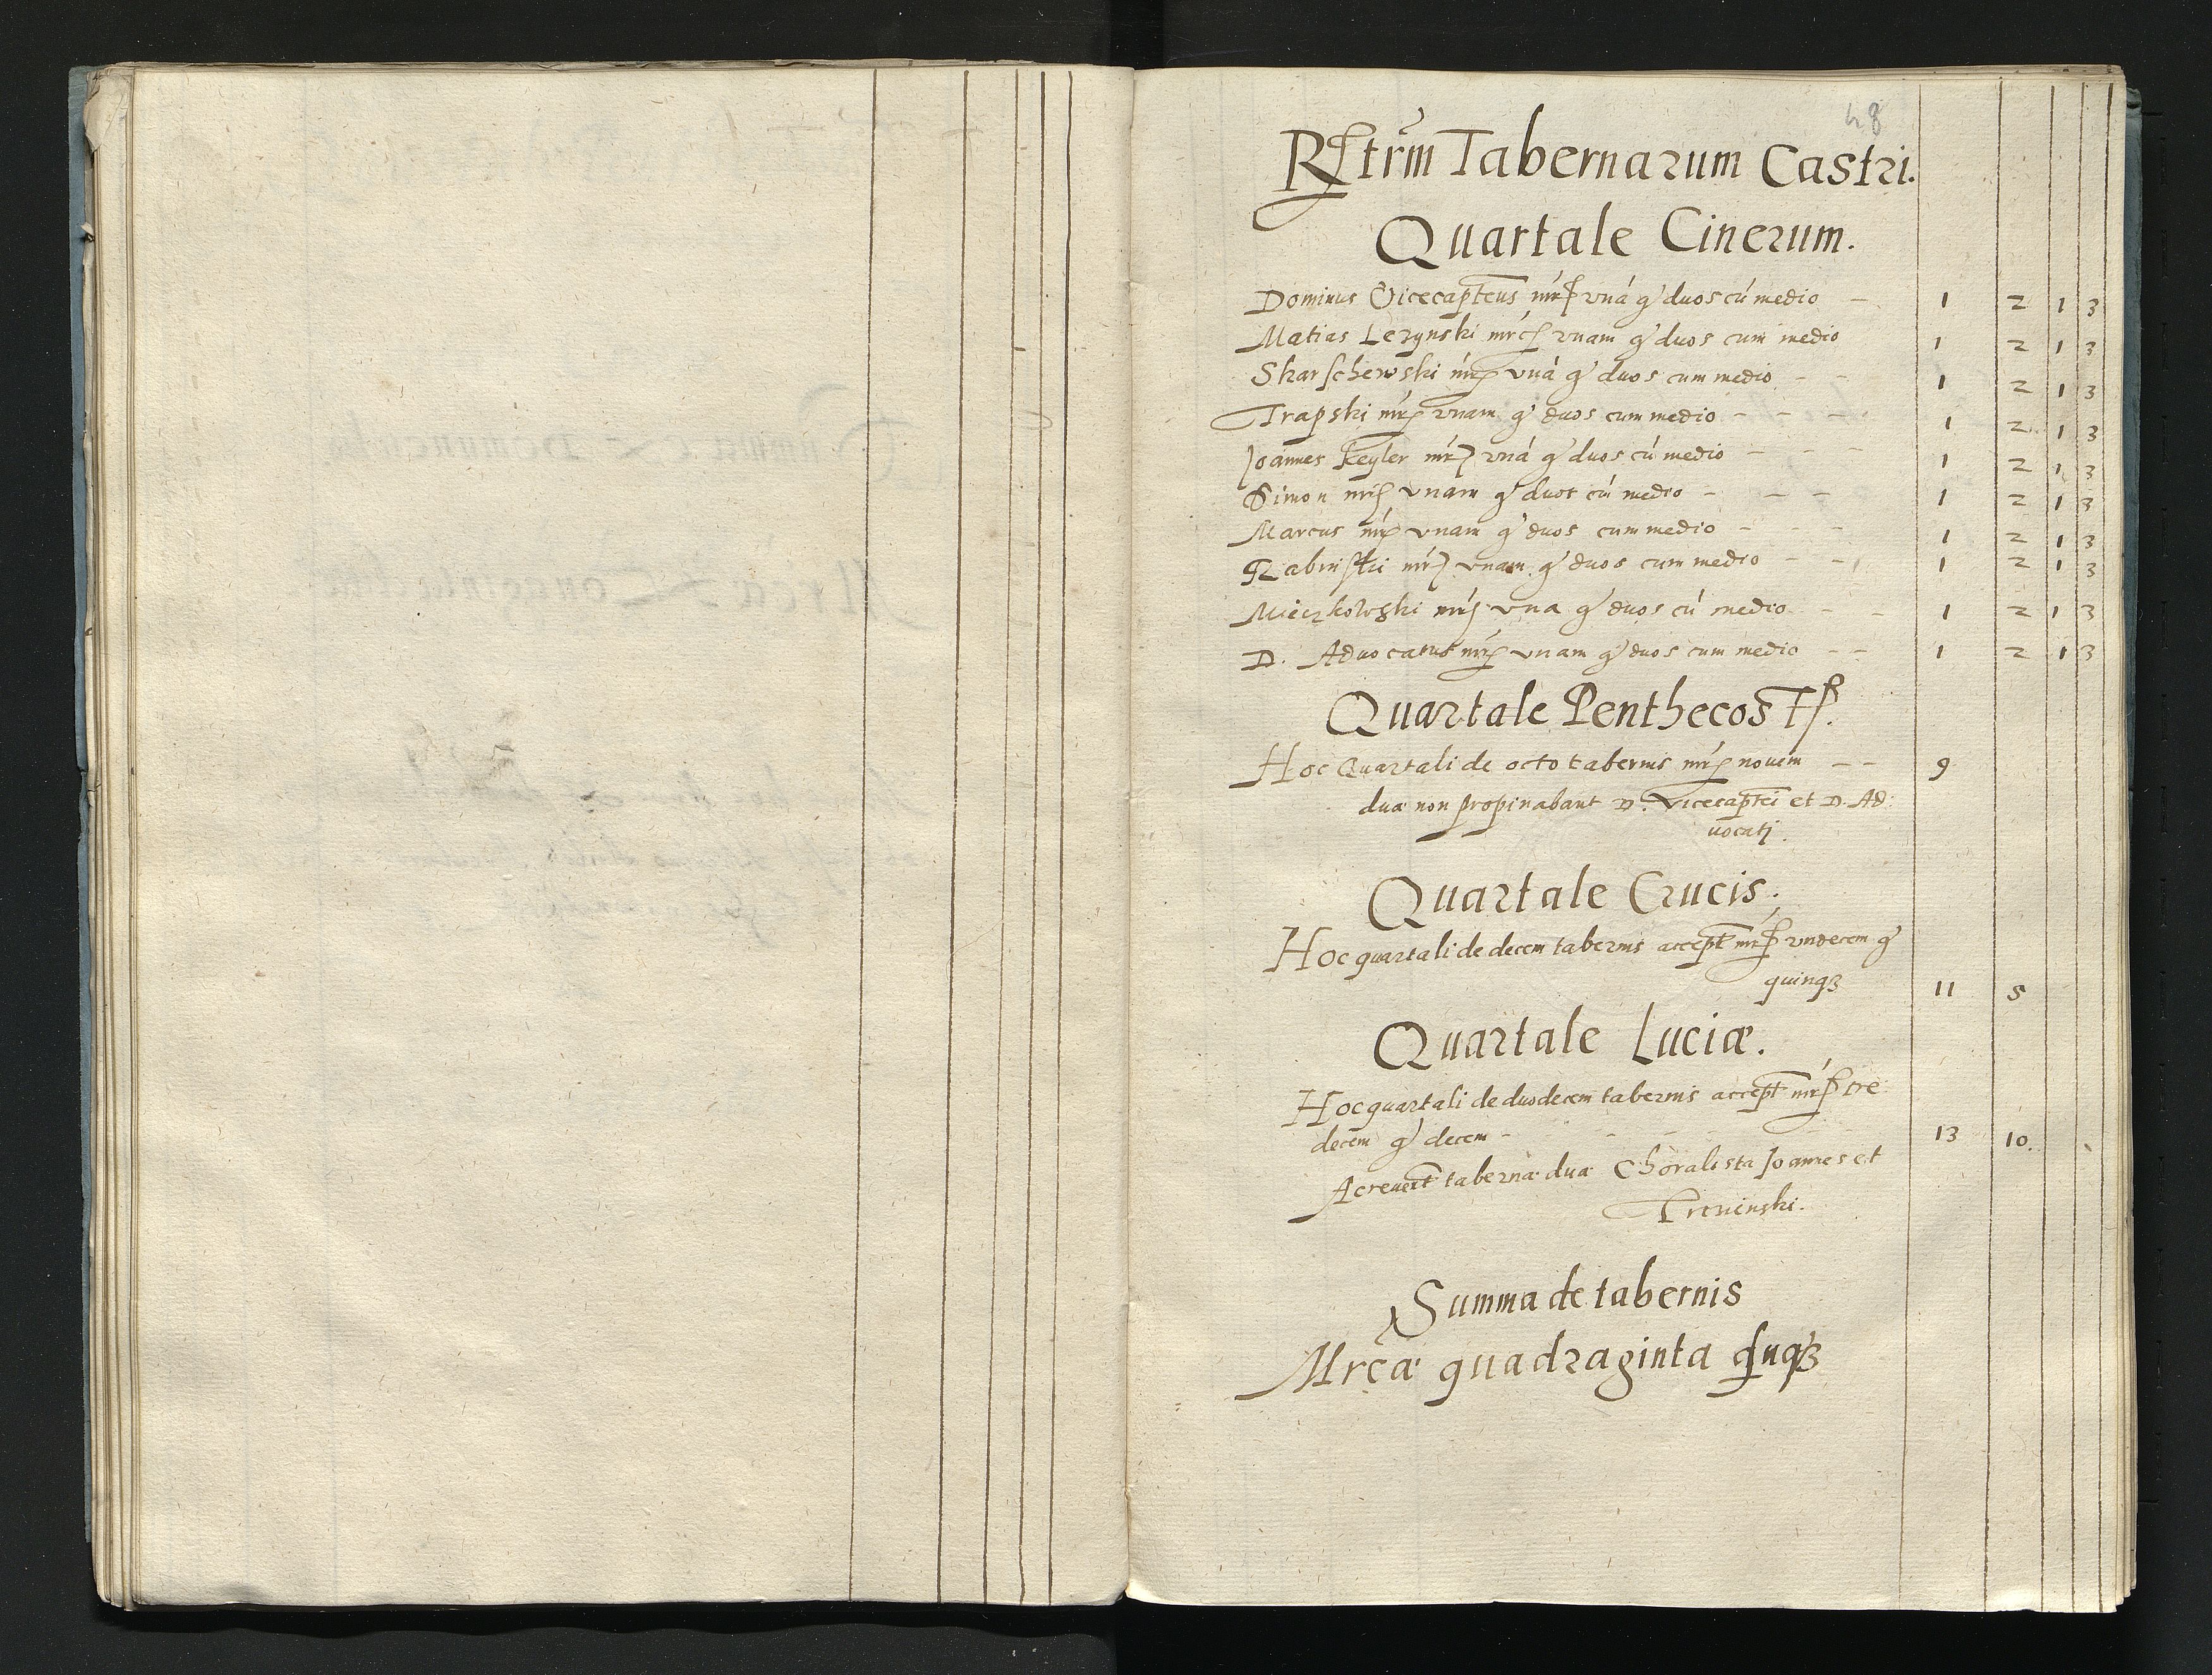 48
Rſtrm Tabernarum Castri.
Quartale Cinerum.
Dominus Vicecapteus mrc unā g duos cū medio – 1 2 1 3
Matias Lezynski mrc unam g duos cum medio 1 2 1 3
Skarschewski mrc unā g duos cum medio – – 1 2 1 3
Trapski mrc unam g duos cum medio – – – 1 2 1 3
Joannes Keyler mrc unā g duos cū medio – – – 1 2 1 3
Simon mrc unam g duos cū medio – – – 1 2 1 3
Marcus mrc unam g duos cum medio – – – 1 2 1 3
Rabinski mrc unam g duos cum medio – – 1 2 1 3
Mieczkowski mrc una g duos cū medio – – 1 2 1 3
D. Aduocatus mrc unam g duos cum medio – – 1 2 1 3
Quartale Penthecost.
Hoc Quartali de octo tabernis mrc nouem – – 9
dua non propinabant D. Vicecaptei et D. Ad
uocatj.
Quartale Crucis.
Hoc quartali de decem tabernis accept mrc undecem g
quinqȝ 11 5
Quartale Luciæ.
Hoc quartali de duodecem tabernis accept mrc tre
decem g decem – – – 13 10.
Acreuert taberna dua Choralista Joannes et
Treuinski.
Summa de tabernis
Mrca quadraginta qnqȝ